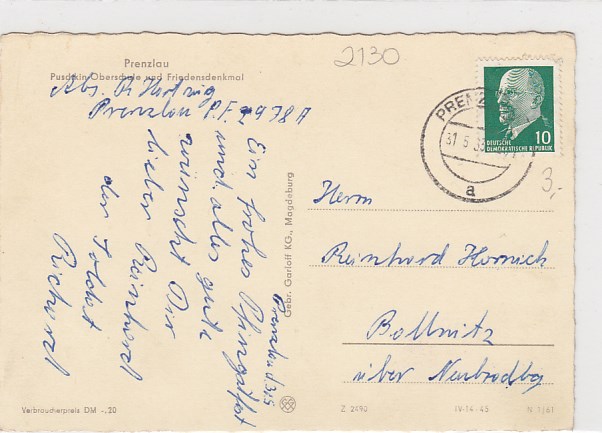 2130
Prenzlau
Puschkin-Oberschule und Friedensdenkmal
Abs. R. Hartwig
Prenzlau P.F. 2978A
Prenzlau d. 31.5
Ein frohes Pfingstfest
und alles gute
wünscht Dir
lieber Reinhard
der Soldat
Richard
Gebr. Garloff KG., Magdeburg
PRENZ
31 5
a
DEUTSCHE
DEMOKRATISCHE REPUBLIK
10
3,-
Herrn
Reinhard Hornich
über
Verbraucherpreis DM -,20
Z 2490
IV-14-45
N 1/61